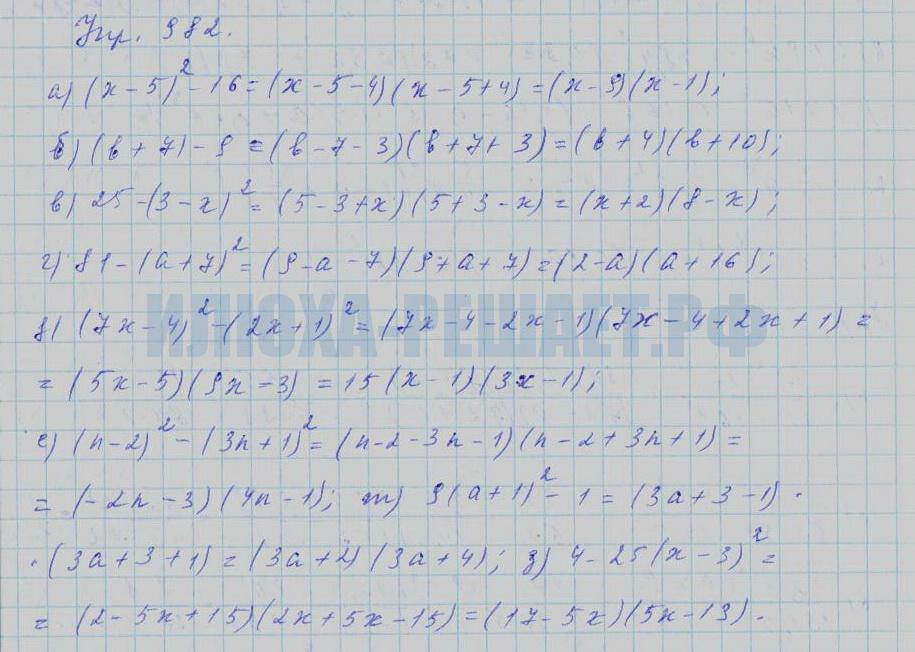 Упр. 982.
а) (x-5)² - 16 = (x-5-4)(x-5+4) = (x-9)(x-1);
б) (b+7) - 9 = (b-7-3)(b+7+3) = (b+4)(b+10);
в) 25-(3-x)² = (5-3+x)(5+3-x) = (x+2)(8-x);
г) 81-(a+7)² = (9-a-7)(9+a+7) = (2-a)(a+16);
ИЛЮХА-РЕШАЕТ.РФ
д) (7x-4)² - (2x+1)² = (7x-4-2x-1)(7x-4+2x+1) =
= (5x-5)(9x-3) = 15(x-1)(3x-1);
е) (n-2)² - (3n+1)² = (n-2-3n-1)(n-2+3n+1) =
= (-2n-3)(4n-1); ж) 9(a+1)² - 1 = (3a+3-1) ·
· (3a+3+1) = (3a+2)(3a+4); з) 4-25(x-3)² =
= (2-5x+15)(2x+5x-15) = (17-5x)(5x-13).